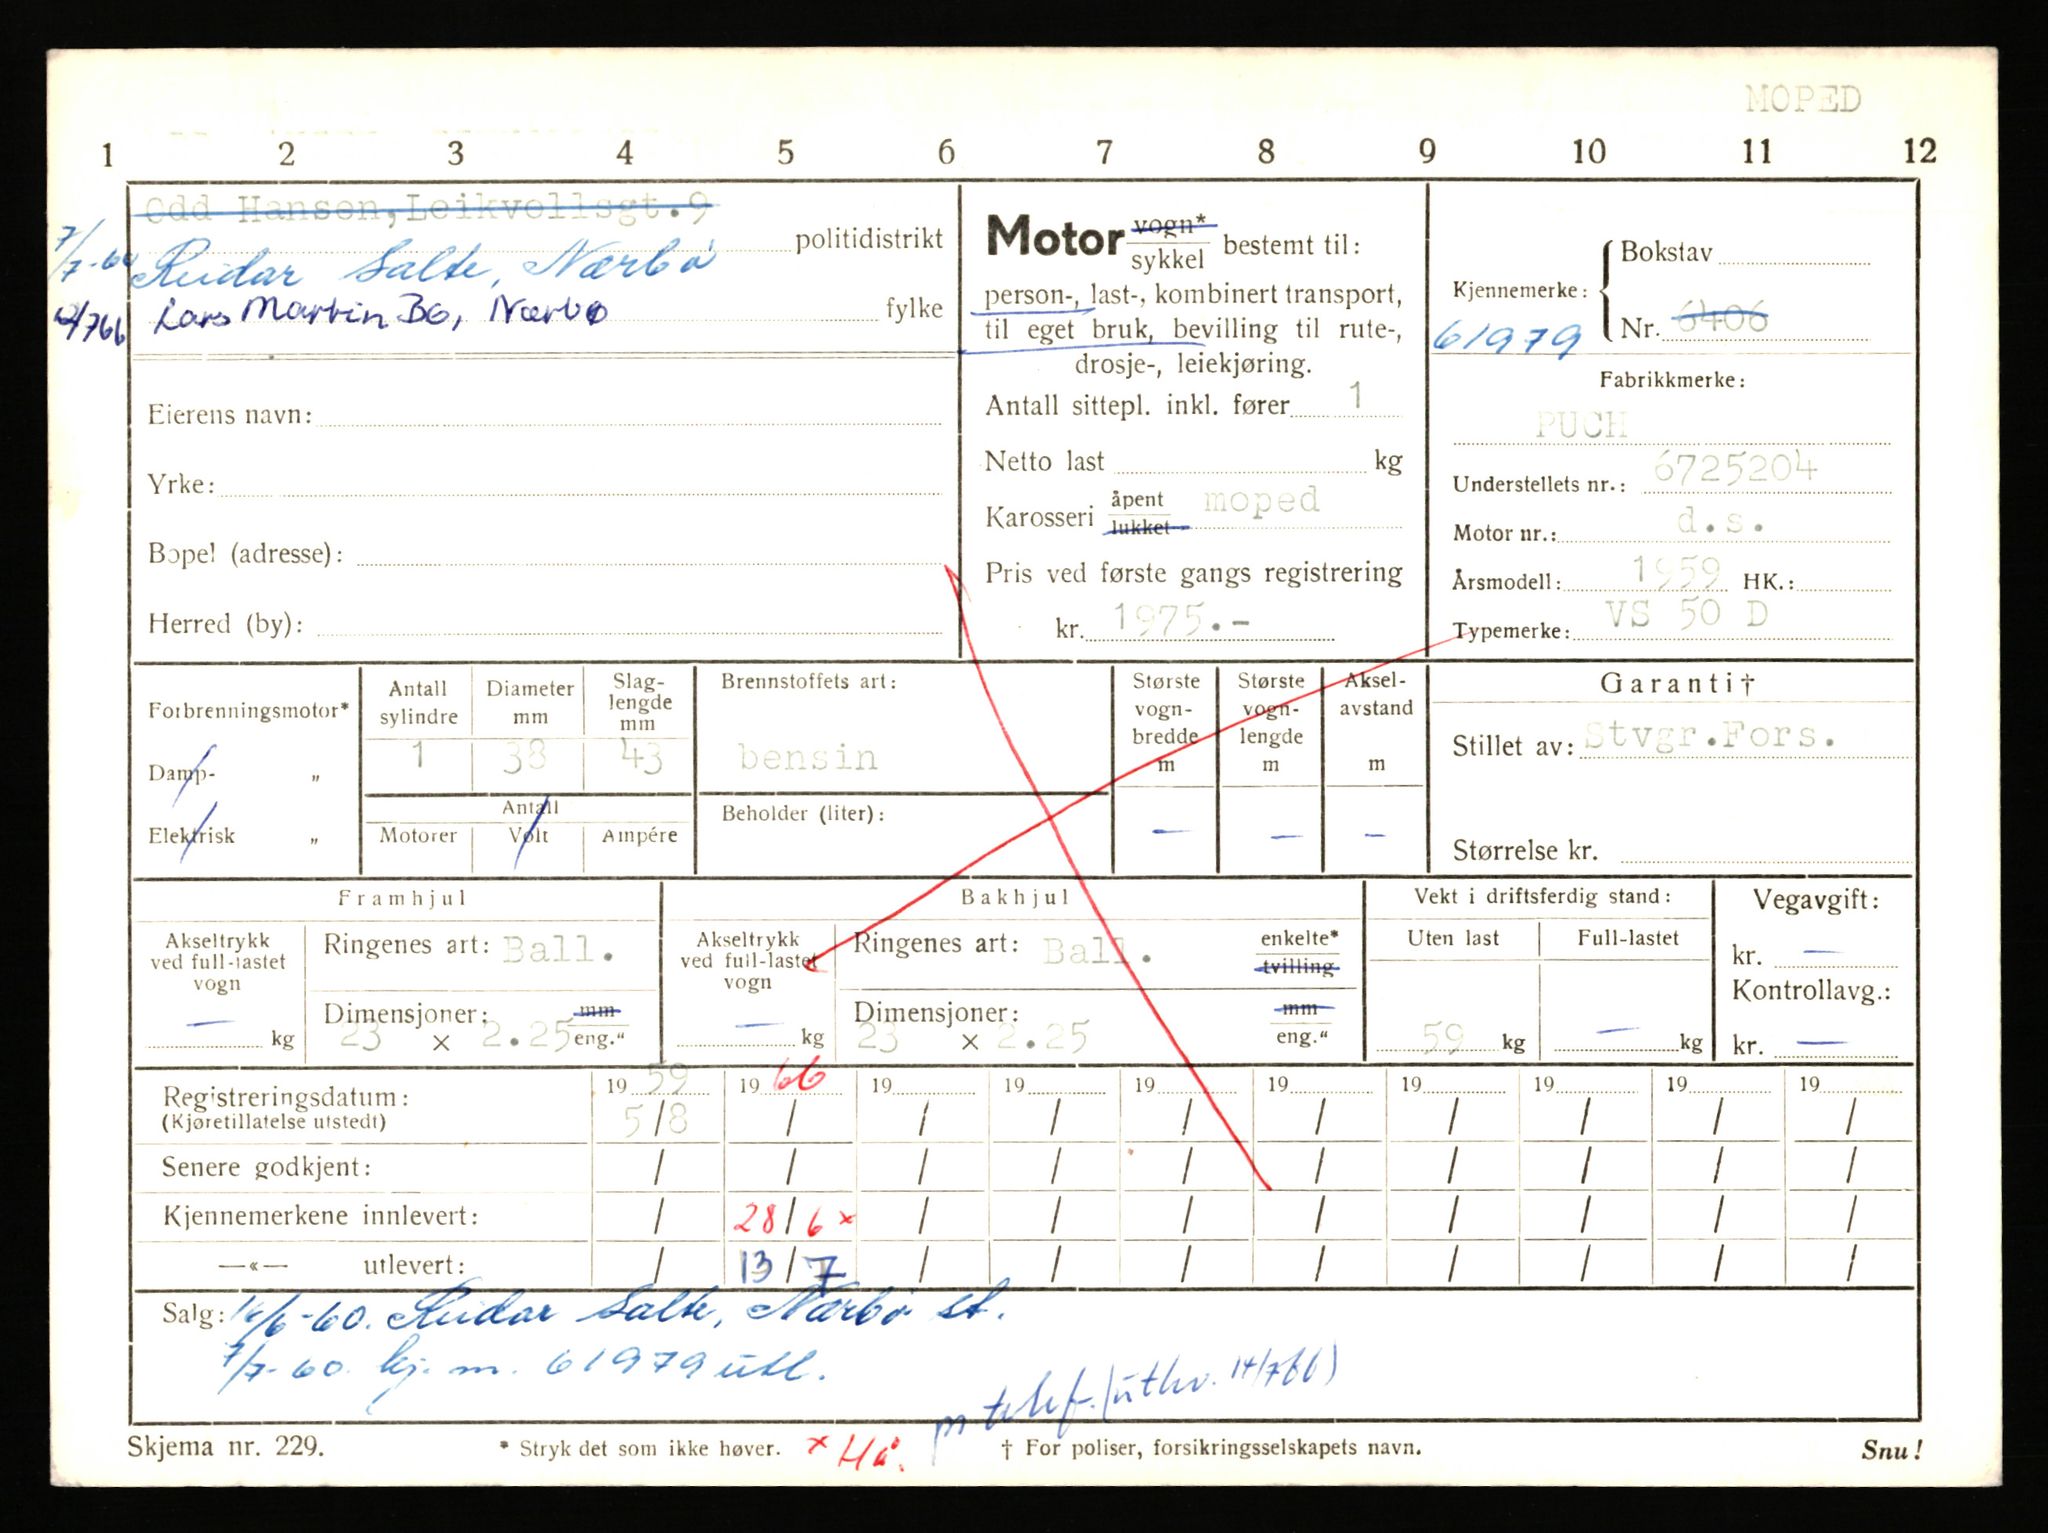 MOPED
1 2 3 4 5 6 7 8 9 10 11 12
Odd Hanson, Leikvollsgt. 9
politidistrikt
7/7-60 Reidar Salte, Nærbø
fylke
Lars Martin Bø, Nærbø
Eierens navn:
Yrke:
Bopel (adresse):
Herred (by):
Motor vogn* / sykkel bestemt til:
person-, last-, kombinert transport,
til eget bruk, bevilling til rute-,
drosje-, leiekjøring.
Antall sittepl. inkl. fører 1
Netto last kg
Karosseri åpent / lukket moped
Pris ved første gangs registrering
kr. 1975.-
Kjennemerke: Bokstav
Nr. 6406
61979
Fabrikkmerke:
PUCH
Understellets nr.: 6725204
Motor nr.: d.s.
Årsmodell: 1959 HK.:
Typemerke: VS 50 D
Forbrenningsmotor*
Damp- „
Elektrisk „
Antall sylindre 1
Diameter mm 38
Slag-lengde mm 43
Antall
Motorer Volt Ampére
Brennstoffets art:
bensin
Beholder (liter):
Største vogn-bredde m —
Største vogn-lengde m —
Aksel-avstand m —
Garanti†
Stillet av: Stvgr.Fors.
Størrelse kr.
Framhjul
Akseltrykk ved full-lastet vogn — kg
Ringenes art: Ball.
Dimensjoner: mm
23 × 2.25 eng.“
Bakhjul
Akseltrykk ved full-lastet vogn — kg
Ringenes art: Ball. enkelte* / tvilling
Dimensjoner: mm
23 × 2.25 eng.“
Vekt i driftsferdig stand:
Uten last Full-lastet
59 kg — kg
Vegavgift:
kr. —
Kontrollavg.:
kr. —
Registreringsdatum: 19 59 19 66 19 19 19 19 19 19 19 19
(Kjøretillatelse utstedt) 5/8 / / / / / / / / /
Senere godkjent: / / / / / / / / / /
Kjennemerkene innlevert: / 28/6 × / / / / / / / /
—«— utlevert: / 13/7 / / / / / / / /
Salg: 16/6-60. Reidar Salte, Nærbø st.
7/7-60. kj. m. 61979 utl.
pr telef. (utlev. 14/766)
Skjema nr. 229.
* Stryk det som ikke høver.
× Hå.
† For poliser, forsikringsselskapets navn.
Snu!